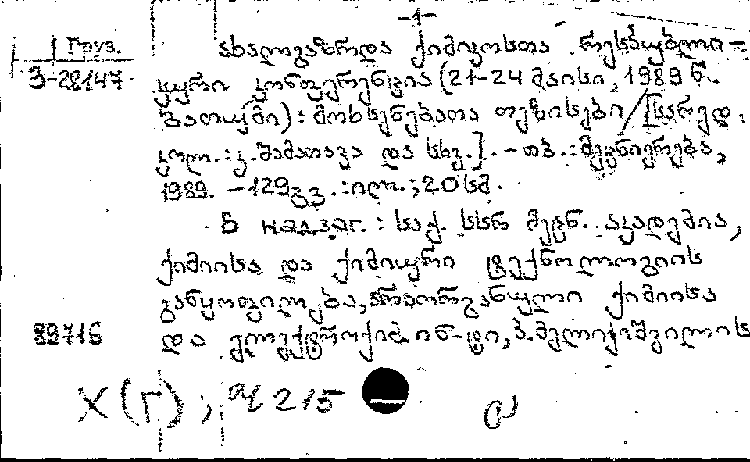 -1-
Груз. ახალგაზრდა ქიმიკოსთა რესპუბლი-
3-28147 კური კონფერენცია (21-24 მაისი, 1989 წ.
ბათუმი): მოხსენებათა თეზისები/[სარედ.
კოლ.: კ. შამათავა და სხვ.]. - თბ.: მეცნიერება,
1989. - 129 გვ.: ილ.; 20 სმ.
В надзаг.: საქ. სსრ მეცნ. აკადემია,
ქიმიისა და ქიმიური ტექნოლოგიის
განყოფილება, არაორგანული ქიმიისა
89716 და ელექტროქიმ. ინ-ტი, პ. მელიქიშვილის
Х(Г); 215